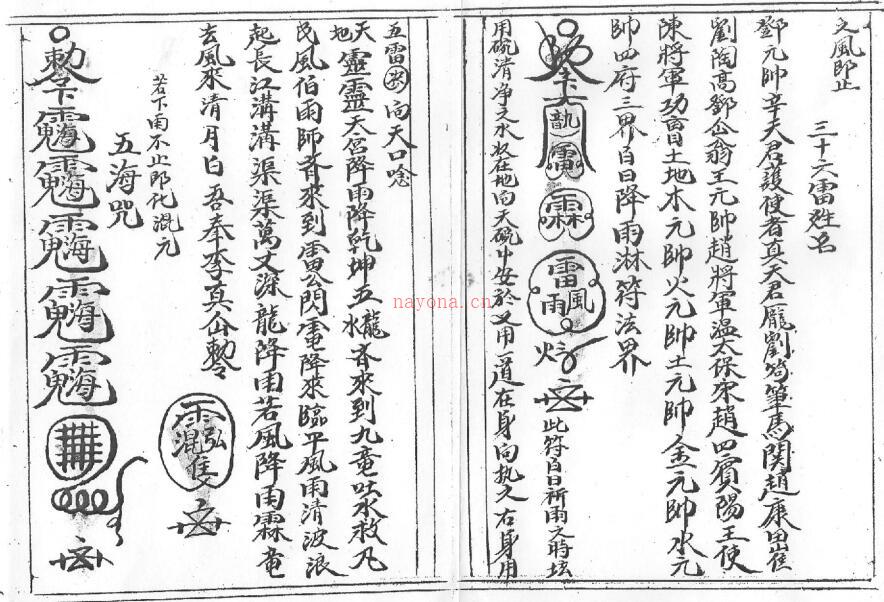 之風即止
三十六雷姓名
鄧元帥辛天君護使者真天君龐劉苟畢馬関趙康田崔
劉陶高鄧公翁王元帥趙將軍温太保宋趙四賓陽王使
陳將軍功曹土地木元帥火元帥土元帥金元帥水元
帥四府三界白日降雨淋符法界
雷
霖
雷
雨風
此符白日祈雨之時坛
用碗清净之水放在地向天碗中安於又用一道在身向执又右身用
五雷向天口唸
天地靈靈天宮降雨降乾坤五龍水斉來到九竜吐水救凡
民風伯雨師斉來到雷公閃電降來臨平風雨清波浪
起長江溝溝渠渠萬丈深龍降雨若風降雨霖竜
去風來清月白吾奉李真仙勅令
若下雨不止即化混元
五海咒
nayona.cn